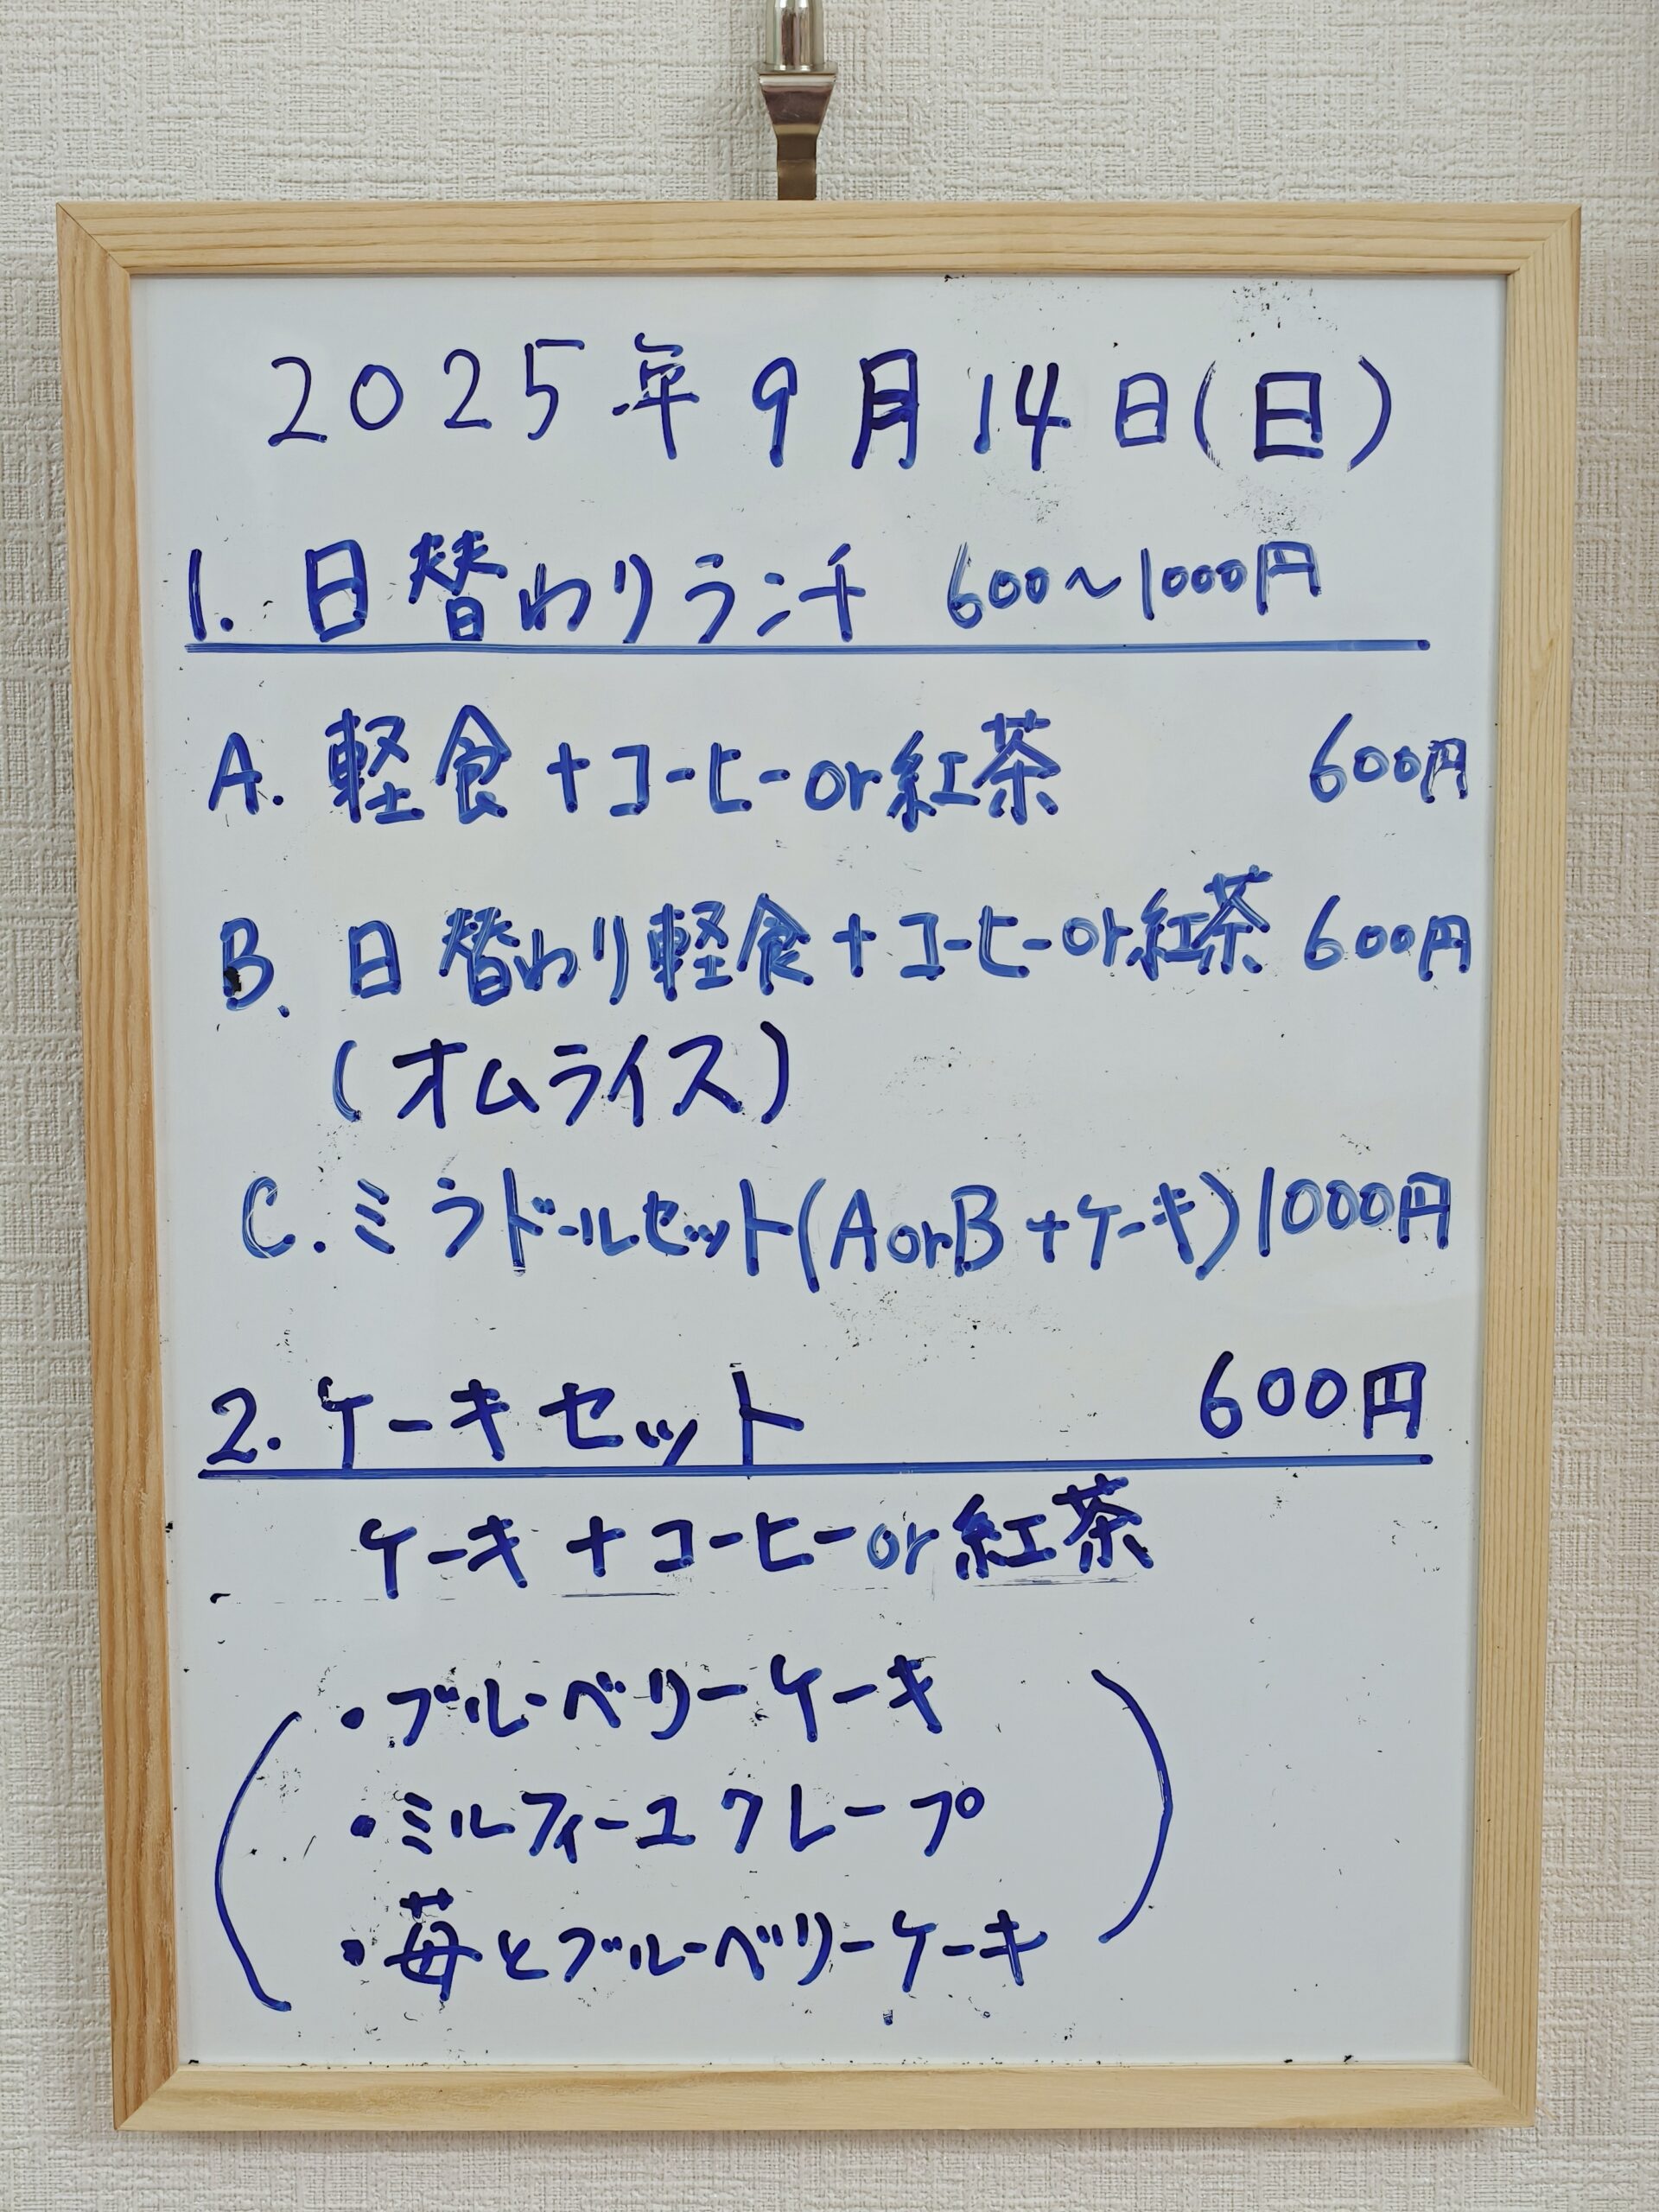 2025年9月14日(日)
1. 日替わりランチ 600~1000円
A. 軽食+コーヒーor紅茶 600円
B. 日替わり軽食+コーヒーor紅茶 600円
(オムライス)
C. ミラドールセット(AorB+ケーキ) 1000円
2. ケーキセット 600円
ケーキ+コーヒーor紅茶
・ブルーベリーケーキ
・ミルフィーユクレープ
・苺とブルーベリーケーキ